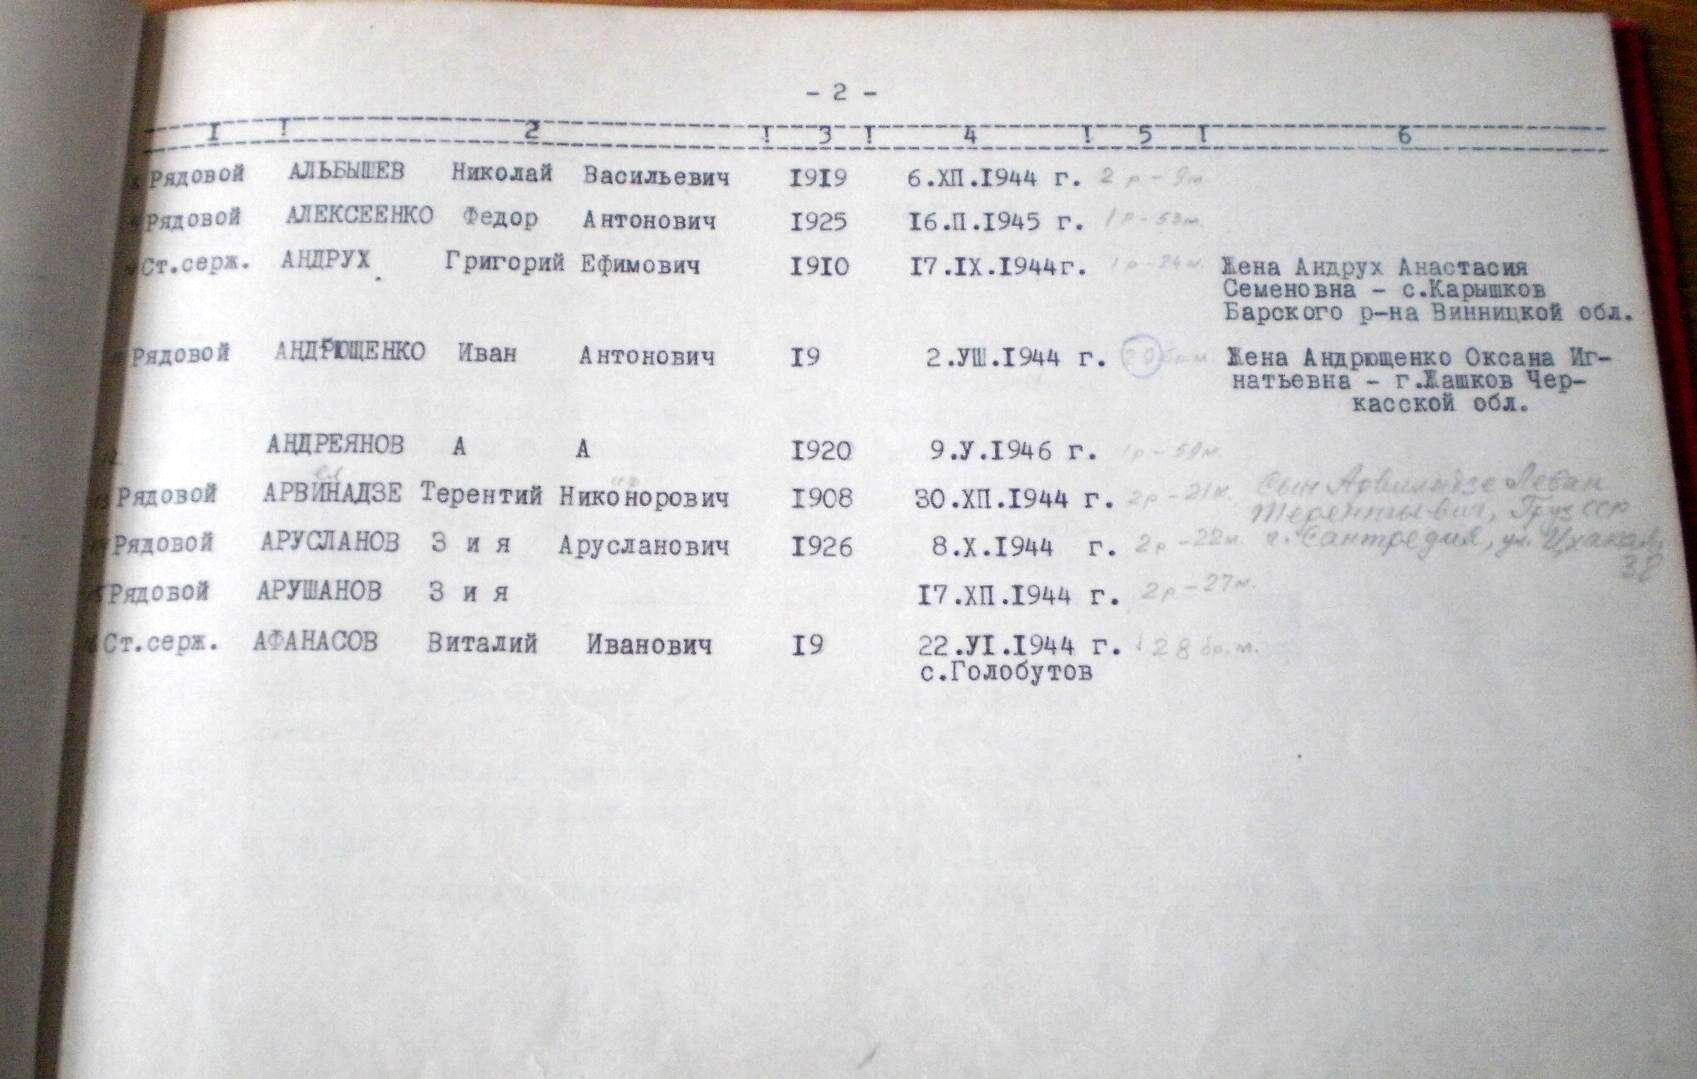 - 2 -
I ! 2 ! 3 ! 4 ! 5 ! 6
Рядовой АЛЬБЫШЕВ Николай Васильевич I9I9 6.ХП.I944 г. 2 р - 9 м.
Рядовой АЛЕКСЕЕНКО Федор Антонович I925 I6.П.I945 г. 1 р - 53 м.
Ст.серж. АНДРУХ Григорий Ефимович I9I0 I7.IХ.I944г. 1 р - 24 м. Жена Андрух Анастасия
Семеновна - с.Карышков
Барского р-на Винницкой обл.
Рядовой АНДРЮЩЕНКО Иван Антонович I9 2.УШ.I944 г. 20 бр.м. Жена Андрющенко Оксана Иг-
натьевна - г.Жашков Чер-
касской обл.
АНДРЕЯНОВ А А I920 9.У.I946 г. 1 р - 59 м.
Рядовой АРВИНАДЗЕ Терентий Никонорович I908 30.ХП.I944 г. 2 р - 21 м. Сын Леван
Терентьевич, Груз ССР
Рядовой АРУСЛАНОВ З и я Арусланович I926 8.Х.I944 г. 2 р - 22 м. г. Самтредия, ул. Цхакая,
38
Рядовой АРУШАНОВ З и я I7.ХП.I944 г. 2 р - 27 м.
Ст.серж. АФАНАСОВ Виталий Иванович I9 22.УI.I944 г. 28 бр.м.
с.Голобутов